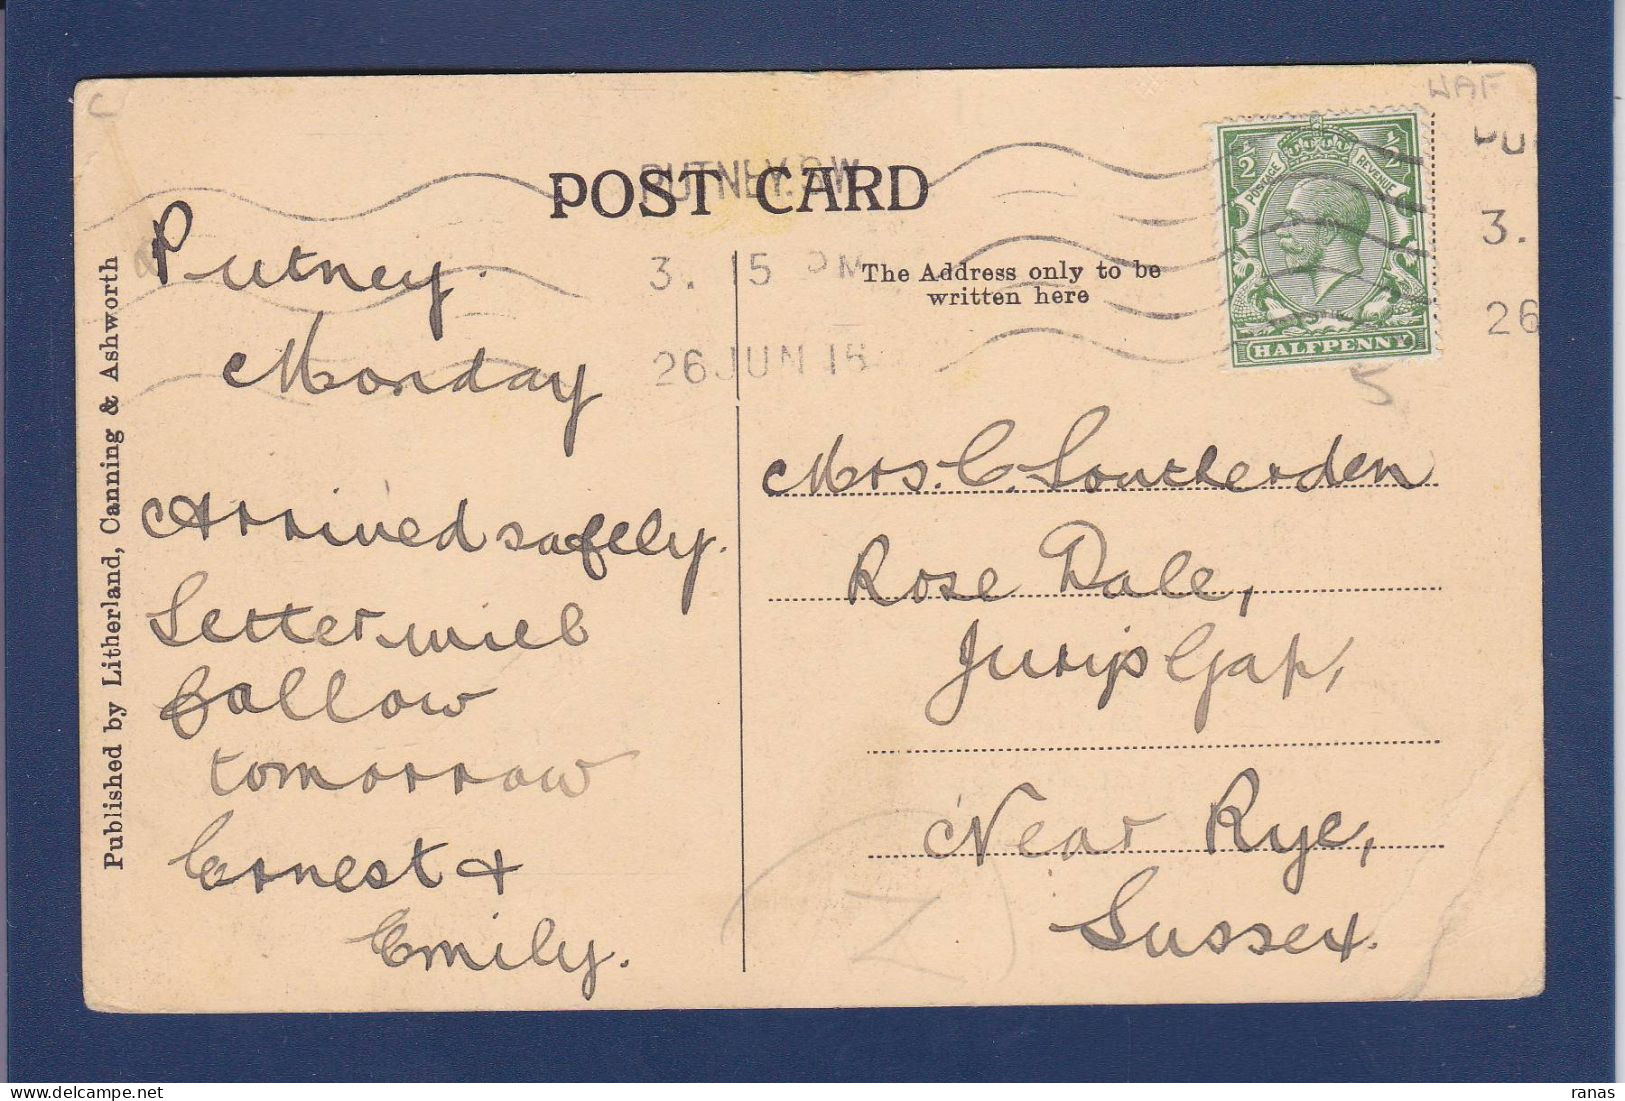 POST CARD
PUTNEY. S.W.
3. 15 PM
26 JUN 16
The Address only to be
written here
½ ½
POSTAGE REVENUE
HALFPENNY
WAF
3.
26
5
Published by Litherland, Canning & Ashworth
Putney.
Monday
Arrived safely.
Letter will
follow
tomorrow
Ernest &
Emily.
Mrs. C. Southerden
Rose Dale,
Jurips Gap,
Near Rye,
Sussex.
ranas